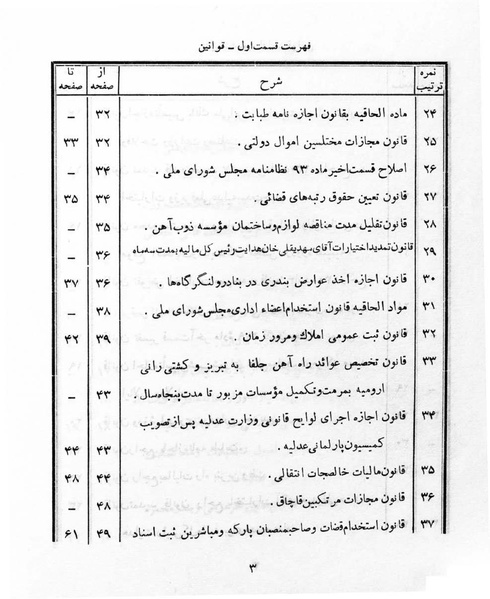 فهرست قسمت اول – قوانین
نمره ترتیب شرح از صفحه تا صفحه
۲۴ ماده الحاقیه بقانون اجازه نامه طبابت . ۳۲ –
۲۵ قانون مجازات مختلسین اموال دولتی . ۳۲ ۳۳
۲۶ اصلاح قسمت اخیر ماده ۹۳ نظامنامه مجلس شورای ملی . ۳۴ –
۲۷ قانون تعیین حقوق رتبه‌های قضائی . ۳۴ ۳۵
۲۸ قانون تقلیل مدت مناقصه لوازم و ساختمان مؤسسه ذوب آهن . ۳۵ –
۲۹ قانون تمدید اختیارات آقای مهدیقلی خان هدایت رئیس کل مالیه بمدت سه ماه ۳۶ –
۳۰ قانون اجازه اخذ عوارض بندری در بنادر و لنگرگاه‌ها . ۳۶ ۳۷
۳۱ مواد الحاقیه قانون استخدام اعضاء اداری مجلس شورای ملی . ۳۸ –
۳۲ قانون ثبت عمومی املاک و مرور زمان . ۳۹ ۴۲
۳۳ قانون تخصیص عوائد راه آهن جلفا به تبریز و کشتی رانی
ارومیه بمرمت و تکمیل مؤسسات مزبور تا مدت پنجاه سال . ۴۳ –
۳۴ قانون اجازه اجرای لوایح قانونی وزارت عدلیه پس از تصویب
کمیسیون پارلمانی عدلیه . ۴۳ ۴۴
۳۵ قانون مالیات خالصجات انتقالی . ۴۴ ۴۸
۳۶ قانون مجازات مرتکبین قاچاق . ۴۸ –
۳۷ قانون استخدام قضات و صاحبمنصبان پارکه و مباشرین ثبت اسناد ۴۹ ۶۱
۳